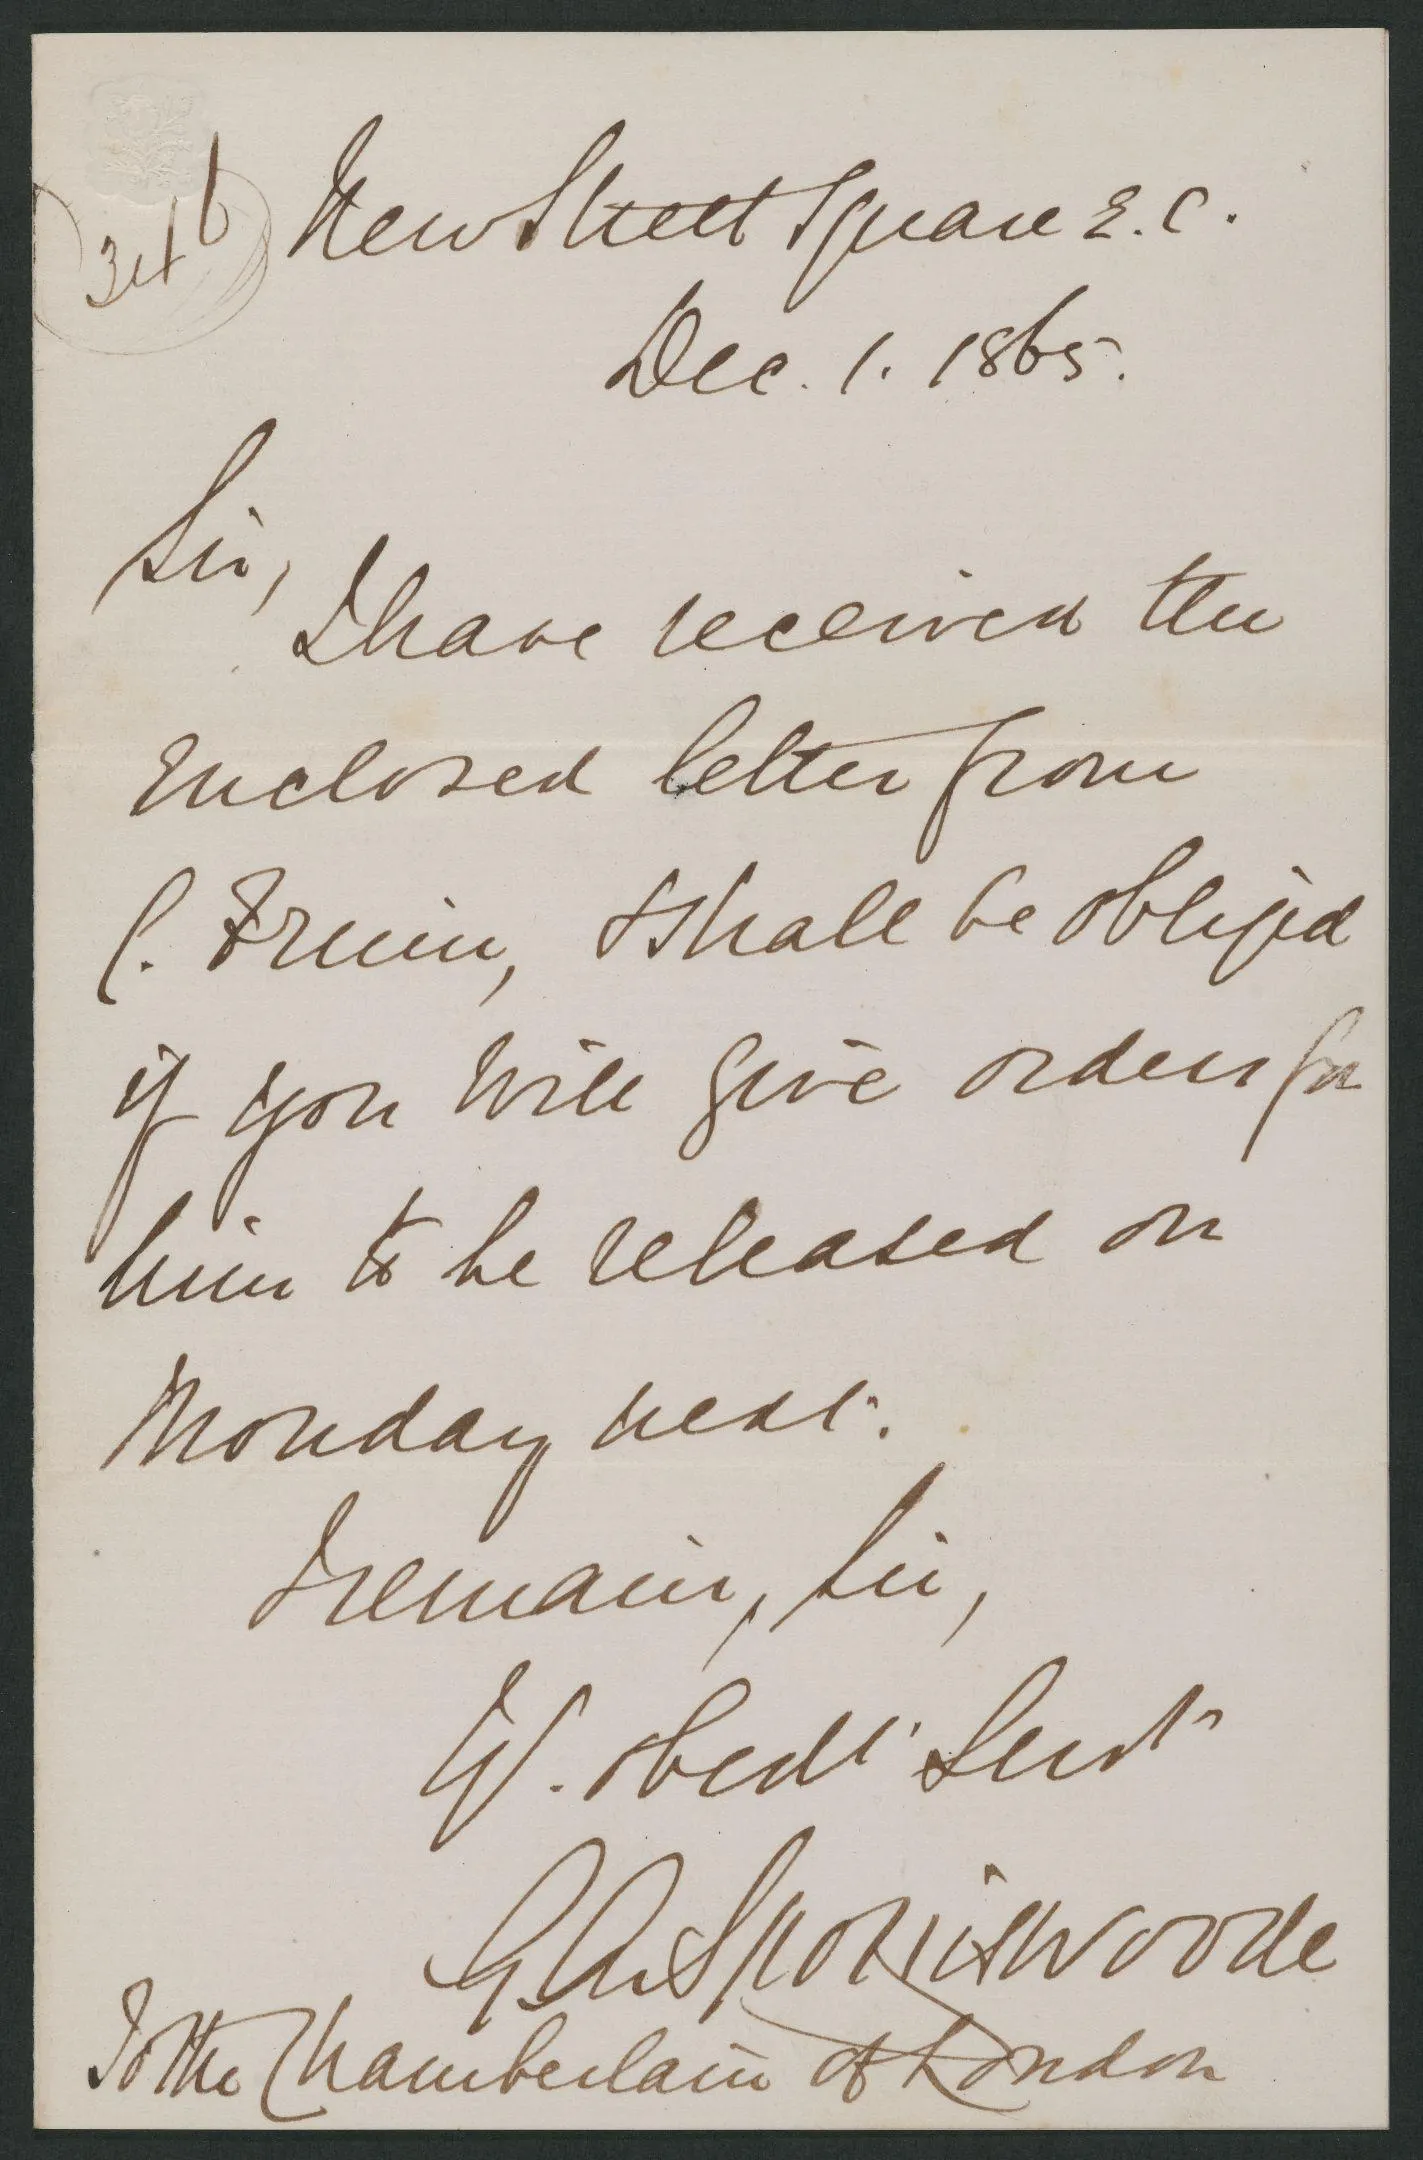 New Street Square E.C.
Dec. 1. 1865.
Sir,
I have received the
enclosed letter from
C. & shall be obliged
if you will give orders for
him to be released on
Monday next.
I remain, Sir,
Yr. obedt Servt
G A Spottiswoode
To the Chamberlain of London